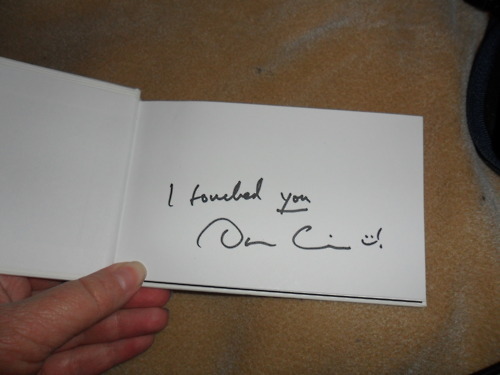 I touched you
:)!